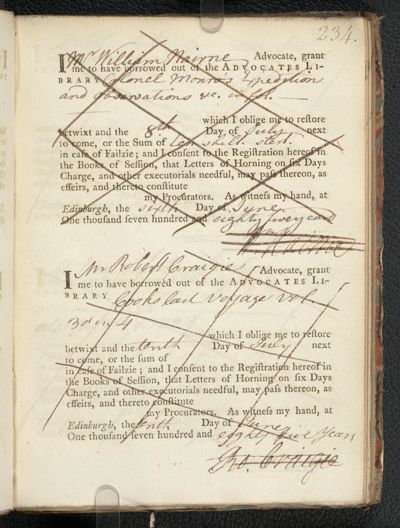 234.
I Mr William Nairne Advocate, grant
me to have borrowed out of the ADVOCATES LI-
BRARY Colonel Monro's Expedition
and observations &c. in fol.
which I oblige me to restore
betwixt and the 8th Day of July next
to come, or the Sum of Ten shill. sterl.
in case of Failzie; and I consent to the Registration hereof in
the Books of Session, that Letters of Horning on six Days
Charge, and other executorials needful, may pass thereon, as
effeirs, and thereto constitute
my Procurators. As witness my hand, at
Edinburgh, the sixth Day of June
One thousand seven hundred and eighty five years
W. Nairne
I Mr Robert Craigie Advocate, grant
me to have borrowed out of the ADVOCATES LI-
BRARY Cooks last Voyage vol.
3d in 4
which I oblige me to restore
betwixt and the tenth Day of July next
to come, or the sum of
in case of Failzie; and I consent to the Registration hereof in
the Books of Session, that Letters of Horning on six Days
Charge, and other executorials needful, may pass thereon, as
effeirs, and thereto constitute
my Procurators. As witness my hand, at
Edinburgh, the tenth Day of June
One thousand seven hundred and eighty five Years
Ro. Craigie